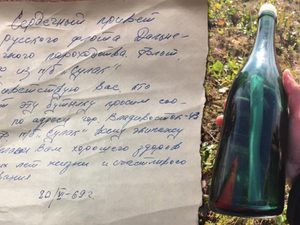 Сердечный привет
русского флота Дальне-
чного пароходства Флот
из п/б „Сулак"
иветствую Вас кто
т эту бутылку просим соо-
по адресу гор. Владивосток-43
п/б „Сулак" всему экипажу
Вам хорошего здоров
их лет жизни и счастливого
вания
20/VI-69 г.